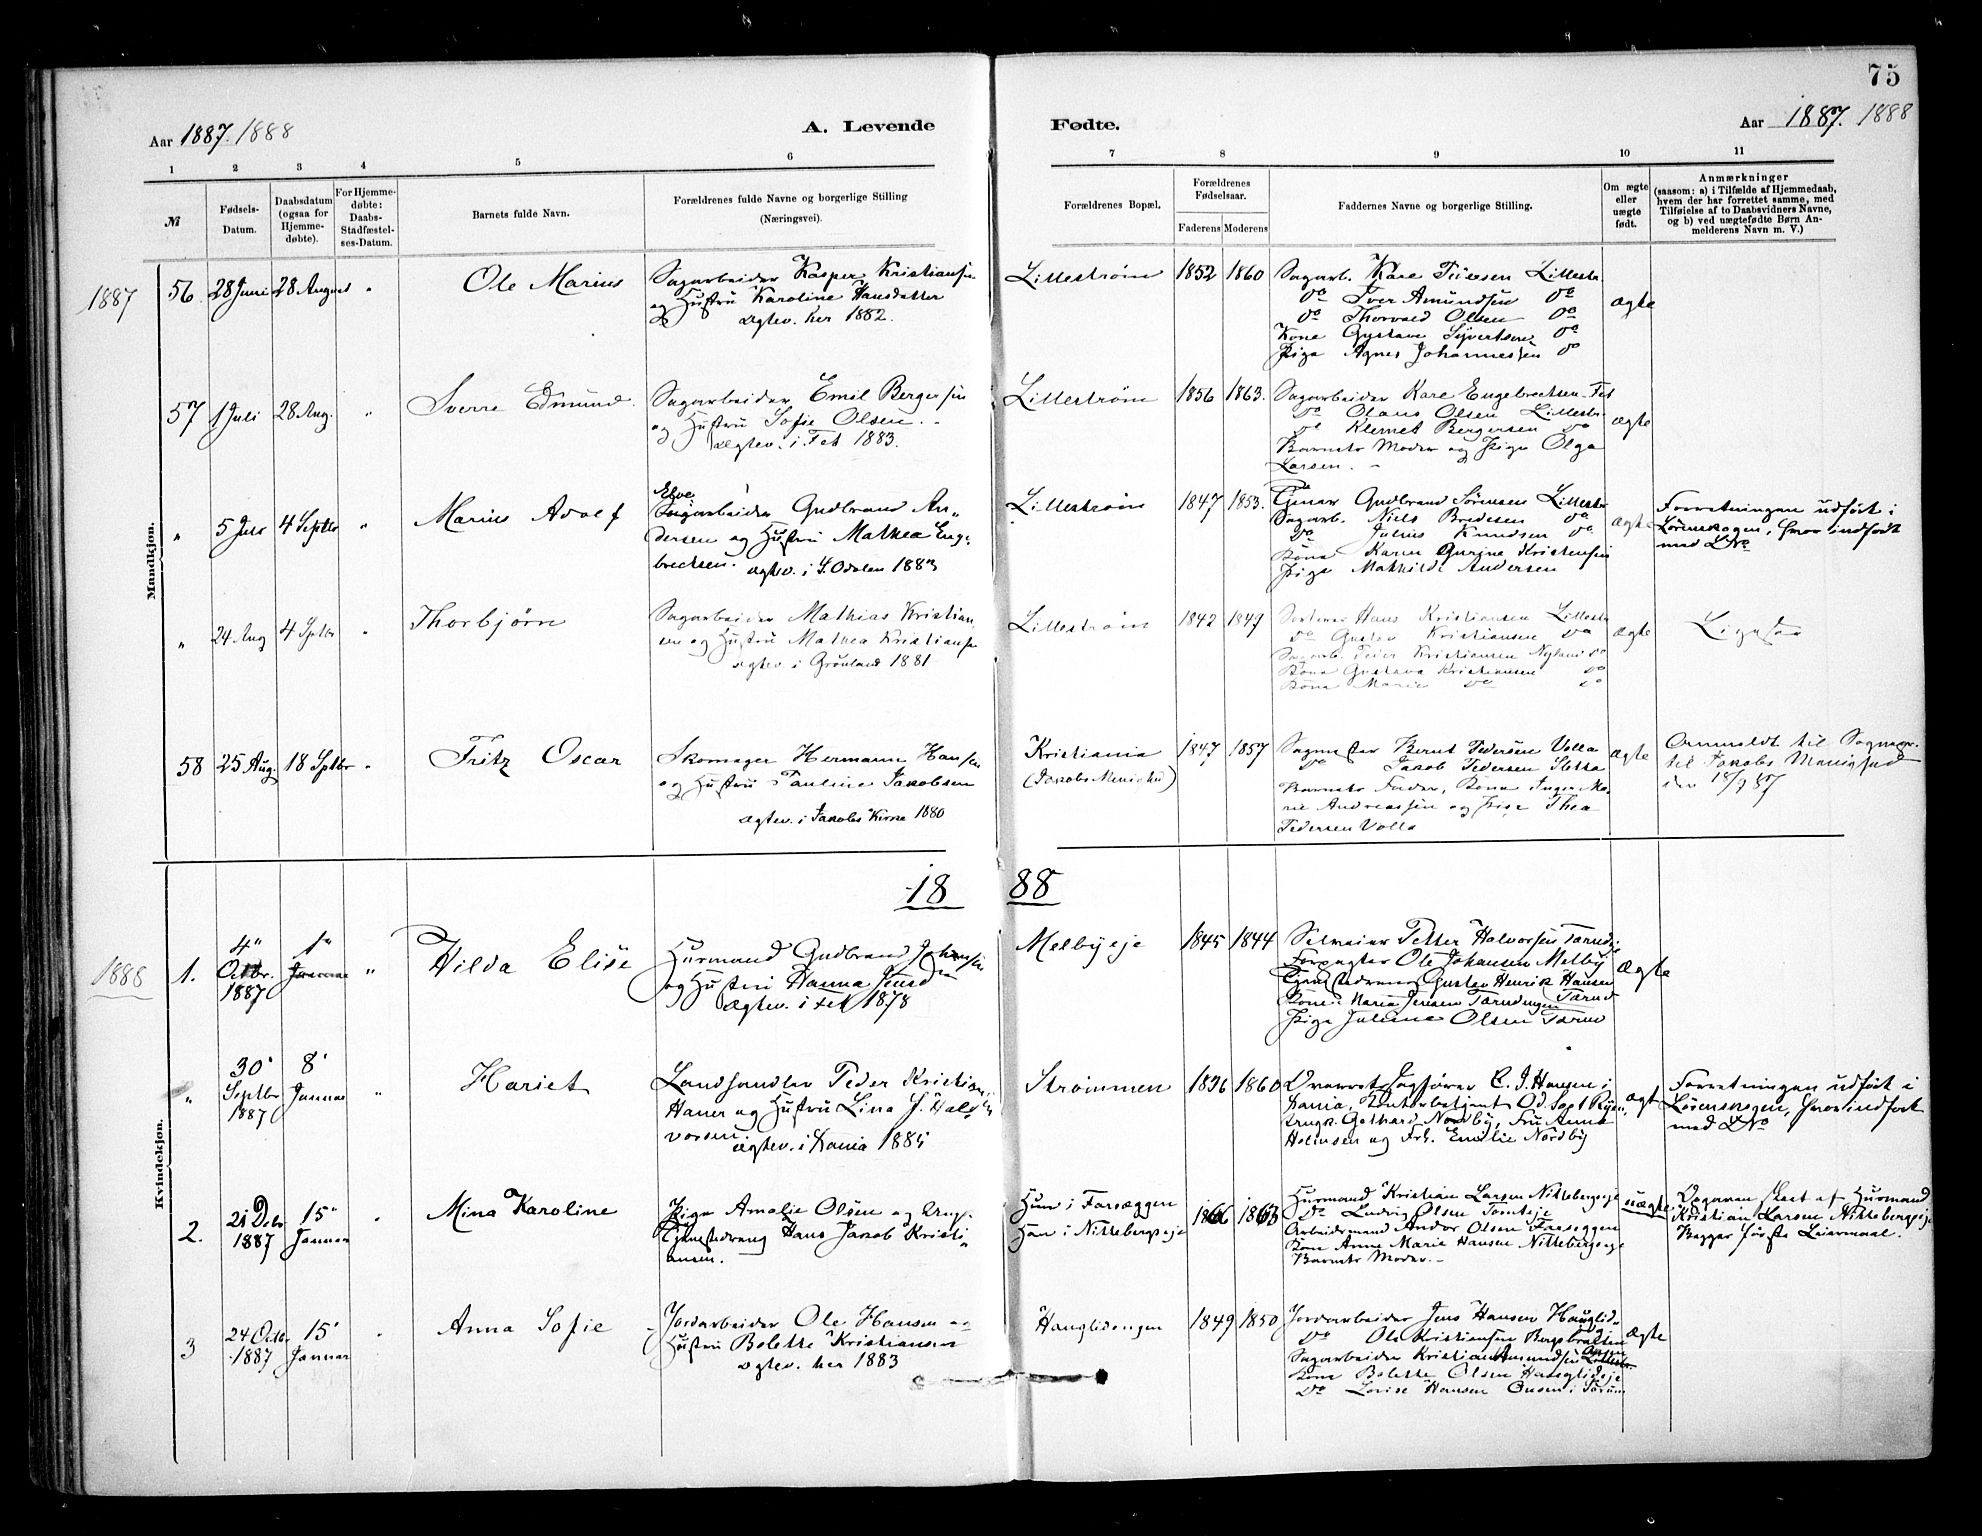 75
Aar 1887. 1888
A. Levende
Fødte.
Aar 1887. 1888
1 2 3 4 5 6 7 8 9 10 11
№
Fødsels-
Datum.
Daabsdatum
(ogsaa for
Hjemme-
døbte).
For Hjemme-
døbte:
Daabs-
Stadfæstel-
ses-Datum.
Barnets fulde Navn.
Forældrenes fulde Navne og borgerlige Stilling
(Næringsvei).
Forældrenes Bopæl.
Forældrenes
Fødselsaar.
Faderens Moderens
Faddernes Navne og borgerlige Stilling.
Om ægte
eller
uægte
født.
Anmærkninger
(saasom: a) i Tilfælde af Hjemmedaab,
hvem der har forrettet samme, med
Tilføielse af to Daabsvidners Navne,
og b) ved uægtefødte Børn An-
melderens Navn m. V.)
Mandkjøn.
1887
56 28 Juni 28 August "
Ole Marius
Sagarbeider Kasper Kristiansen
og Hustru Karoline Hansdatter
ægtev. her 1882.
Lillestrøm
1852 1860
Sagarb. Kare Lillestr.
do Iver Amundsen do
do Thorvald Olsen do
Kone Gustava Syvertsen do
Pige Agnes Johannessen do
ægte
57 1 Juli 28 Aug. "
Sverre Edmund.
Sagarbeider Emil Bergersen
og Hustru Sofie Olsen.
ægtev. i Fet 1883.
Lillestrøm
1856 1863.
Sagarbeider Kare Engebretsen Fet
do Olaus Olsen Lillestr.
do Klemet Bergersen do
Barnets Moder og Pige Olga
Larsen.
ægte
" 5 Juli 4 Septbr "
Marius Adolf
Sagarbeider Gudbrand An-
dersen og Hustru Mathea Eng-
brechsen. ægtev. i S. Odalen 1883
Lillestrøm
1847 1853.
Gudbrand Sørensen Lillestr
Sagarb. Niels Bredesen do
do Julius Knudsen do
Kone Karen Gurine Kristensen
Pige Mathilde Andersen
ægte
Forretningen udført i
Lørenskogen, hvor indført
med L№
" 24 Aug 4 Sptbr "
Thorbjørn
Sagarbeider Mathias Kristian-
sen og Hustru Mathea Kristiansen
ægtev. i Grønland 1881
Lillestrøm
1842 1849
Hans Kristiansen Lillestr
do Gustav Kristiansen do
Sagarb. Peder Kristiansen Nyland do
Kone Gustava Kristiansen do
Kone Marie do do
ægte
Ligesaa
58 25 Aug. 18 Sptbr "
Fritz Oscar
Skomager Hermann Hansen
og Hustru Pauline Jakobsen
ægtev. i Jakobs Kirke 1880
Kristiania
(Jakobs Menighed)
1847 1857
Bernt Pedersen Volla
do Jakob Pedersen Sletta
Barnets Fader, Kone Inger Ma-
rie Andreassen og Pige Thea
Pedersen Volla
ægte
Anmeldt til Sognepr.
til Jakobs Menighed
den 18/9 87
1888
1888
Kvindekjøn.
1. 4" Octbr. 1887 1" Januar "
Hilda Elise
Husmand Gudbrand Johansen
og Hustru Hanna
ægtev. i Fet 1878
Melbyeje
1845 1844
Selveier Petter Halvorsen Tærud
Forpagter Ole Johansen Melby
Tjenestedreng Gustav Henrik Hansen
Kone Maria Jensen Tærudengen Tærud
Pige Juline Olsen Tærud
Ægte
" 30' Septbr 1887 8' Januar "
Hariet
Landhandler Peder Kristian
Hauer og Hustru Lina J. Hal-
vorsen. ægtev. i Kania 1885
Strømmen
1836 1860
Overretssagfører C. J. Hansen i
Kania, Kontorbetjent Od. Sept Ryen,
Brugs. Gothard Nordby, Fru Anna
Holmsen og Frk. Emilie Nordby
ægte
Forretningen udført i
Lørenskogen, hvor indført
med L№
2. 21 Decbr 1887 15" Januar "
Mina Karoline
Pige Amalie Olsen og Ungk.
Tjenestedreng Hans Jakob Kristi-
ansen.
Hun i Farseggen
Han i Nittebergseje
1866 1863
Husmand Kristian Larsen Nittebergseje
do Ludvig Olsen Tomteje
Arbeidsmand Andor Olsen Farseggen
Kone Anne Marie Hansen Nittebergseje
Barnets Moder.
uægte
Opgaven skeet af Husmand
Kristian Larsen Nittebergseje
Begges første Leiermaal.
3 24 Octbr 1887 15' Januar "
Anna Sofie
Jordarbeider Ole Hansen og
Hustru Bolette Kristiansen
ægtev. her 1883
Hauglidengen
1849 1850
Jordarbeider Jens Hansen Hauglid-
do Ole Kristiansen Bergsbraaten
Sagarbeider Kristian Amundsen
Kone Bolette Olsen Hauglideje
do Lovise Hansen i Sørum
ægte